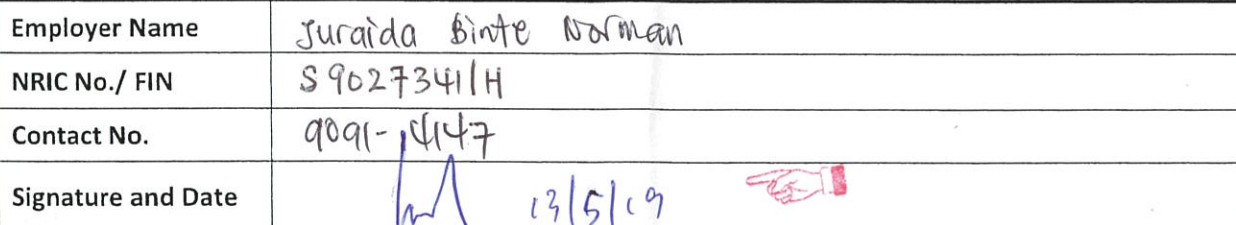 Employer Name Juraida Binte Norman
NRIC No./ FIN S9027341/H
Contact No. 9091-4147
Signature and Date 13/5/19